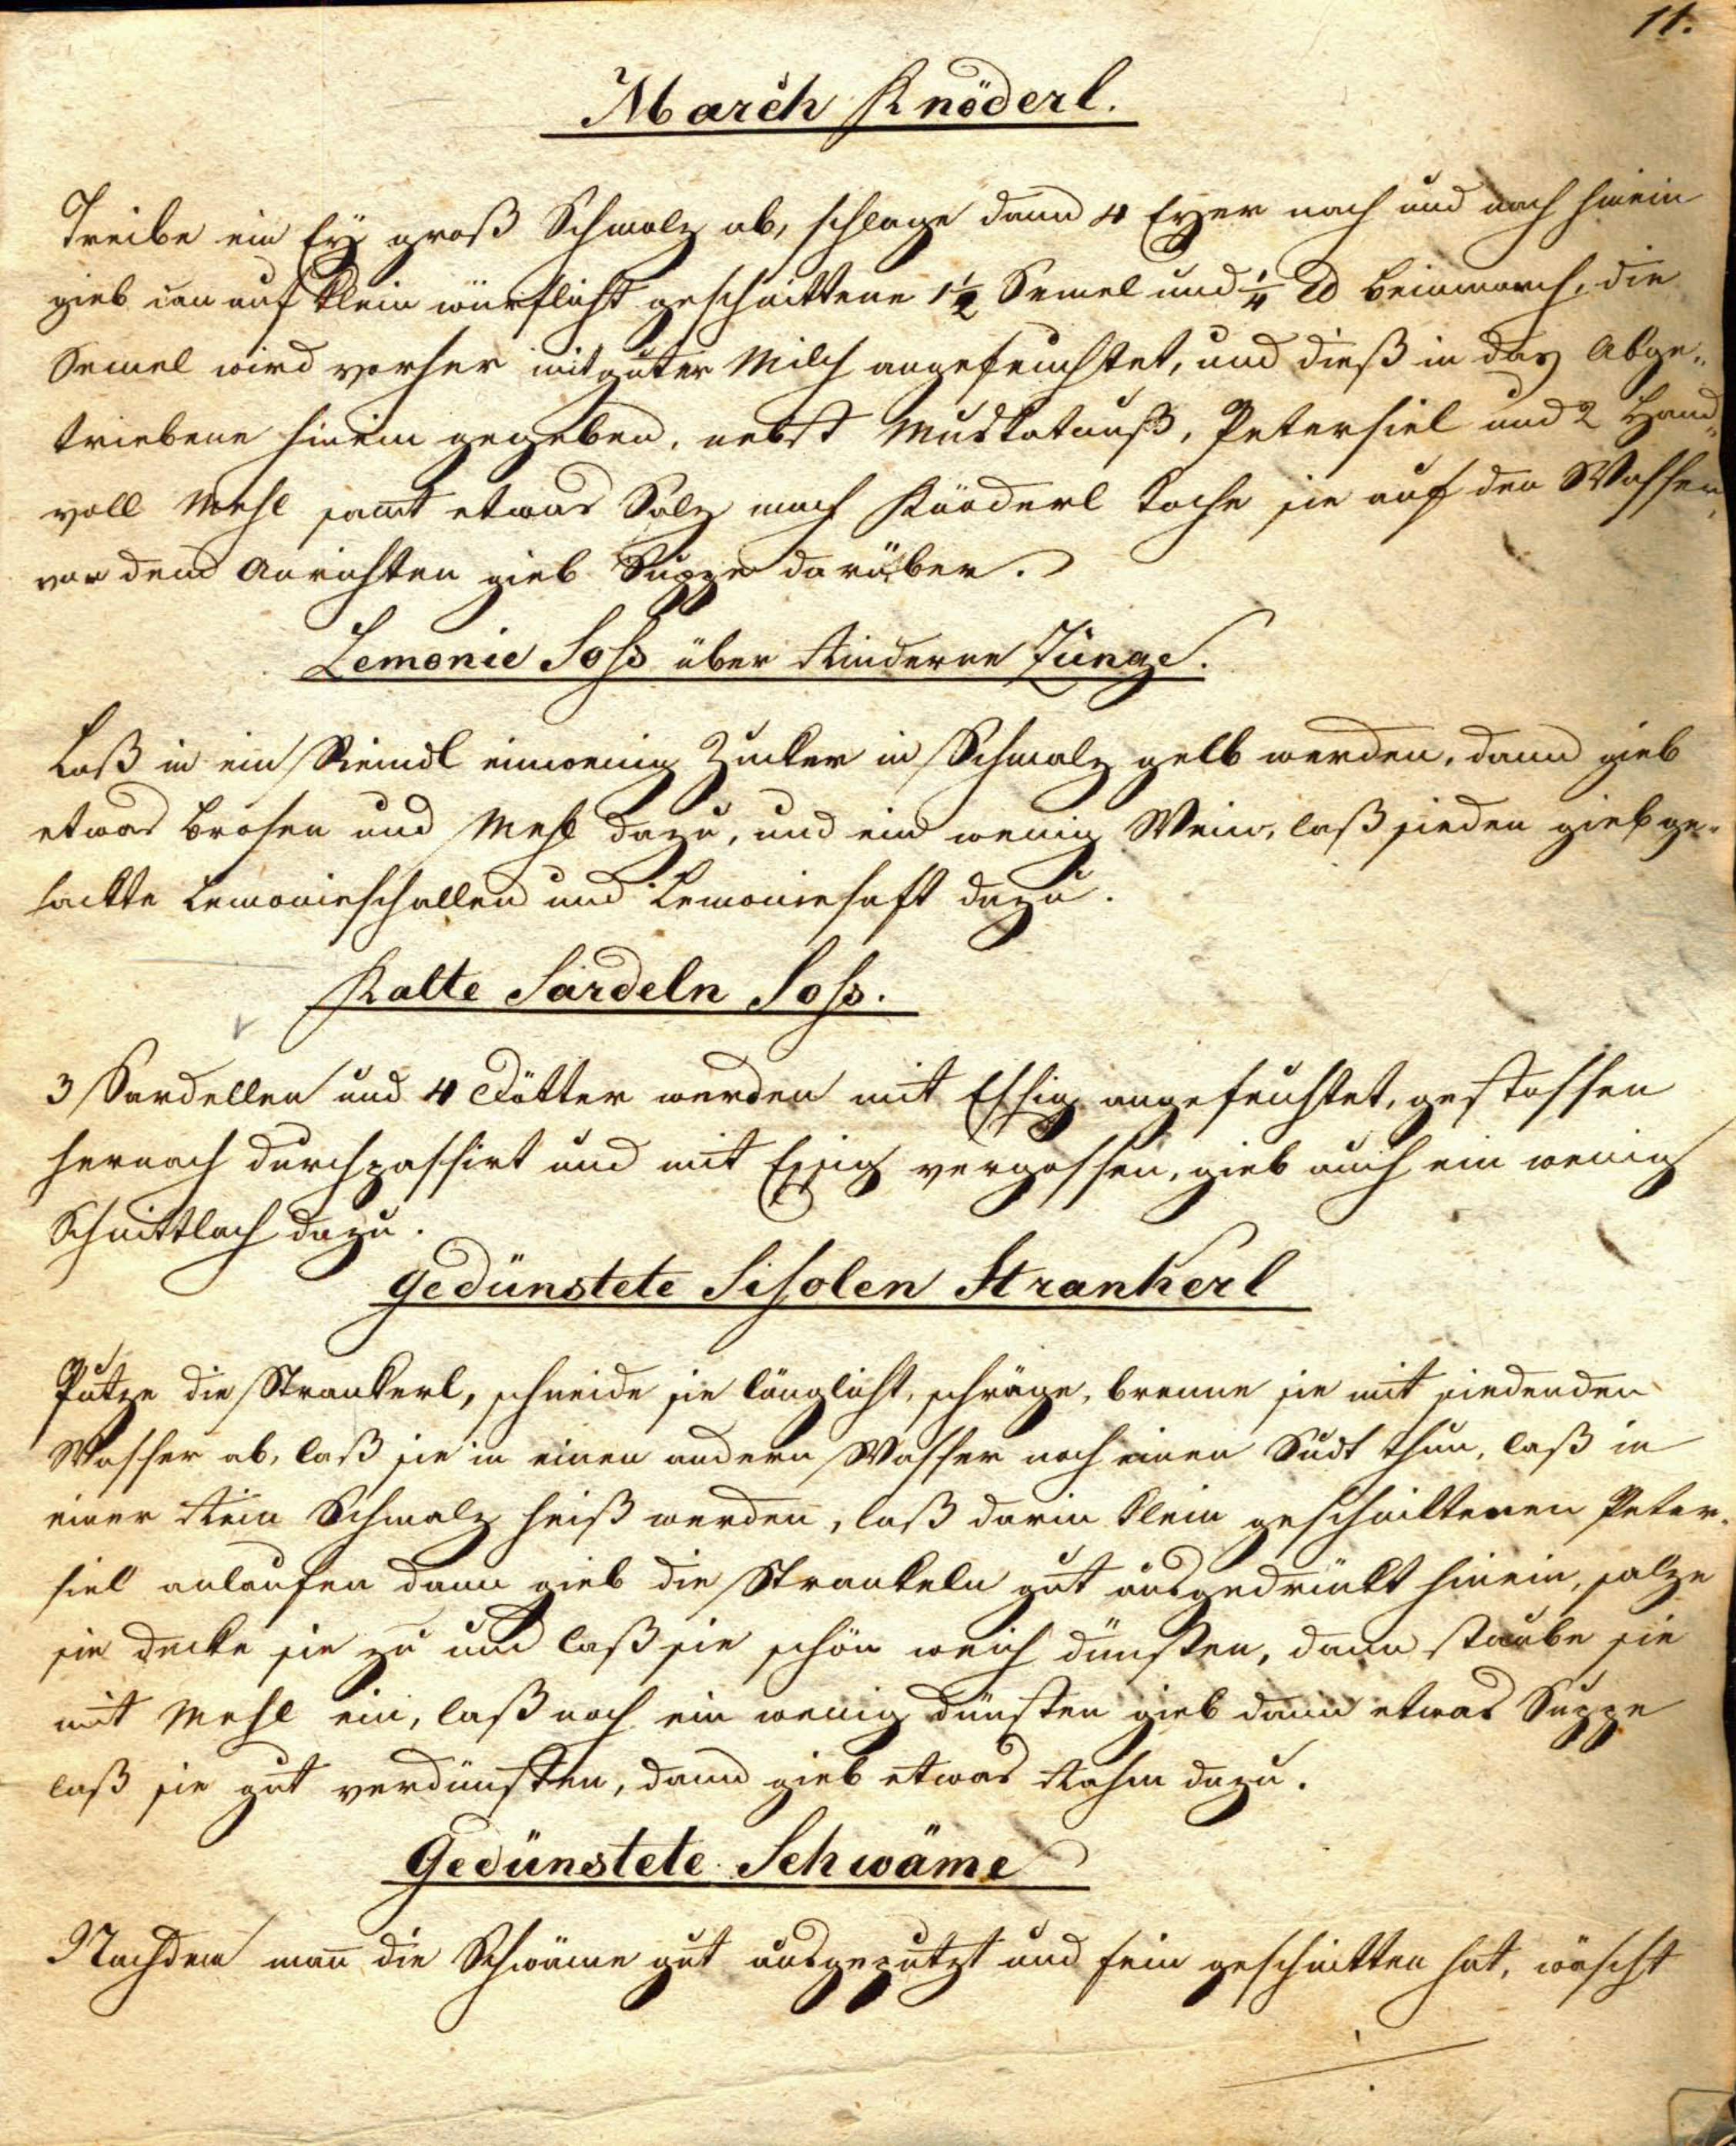 11.
March Knöderl.
Treibe ein Ey groß Schmalz ab, schlage dann 4 Eyer nach und nach hinein
gieb dan auf klein würflicht geschnittene 1½ Semel und ¼ ℔ Beinmarch, die
Semel wird vorher mit guter Milch angefeuchtet, und dieß in das Abge„
triebene hinein gegeben, nebst Muskatnuß, Petersiel und 2 Hand„
voll Mehl samt etwas Salz mach Knöderl koche sie auf den Wasser,
vor dem Anrichten gieb Suppe darüber.
Lemonie Soß über Rinderne Zunge.
Laß in ein Reindl einwenig Zucker in Schmalz gelb werden, dann gieb
etwas Brösen und Mehl dazu, und ein wenig Wein, laß sieden gieb ge„
hackte Lemonieschallen und Lemoniesaft dazu.
Kalte Sardeln Soß.
3 Sardellen und 4 Dötter werden mit Essig angefeuchtet, gestossen
hernach durchpassirt und mit Essig vergossen, gieb auch ein wenig
Schnittlach dazu.
Gedünstete Fisolen Strankerl
Putze die Strankerl, schneide sie länglicht, schräge, brenne sie mit siedenden
Wasser ab, laß sie in einen andern Wasser noch einen Sudt thun, laß in
einer Rein Schmalz heiß werden, laß darin klein geschnittenen Peter„
siel anlaufen dann gieb die Strankeln gut ausgedrückt hinein, salze
sie decke sie zu und laß sie schön weich dünsten, dann staube sie
mit Mehl ein, laß noch ein wenig dünsten gieb dann etwas Suppe
laß sie gut verdünsten, dann gieb etwas Rahm dazu.
Gedünstete Schwäme
Nachdem man̄ die Schwäme gut ausgeputzt und fein geschnitten hat, wäscht